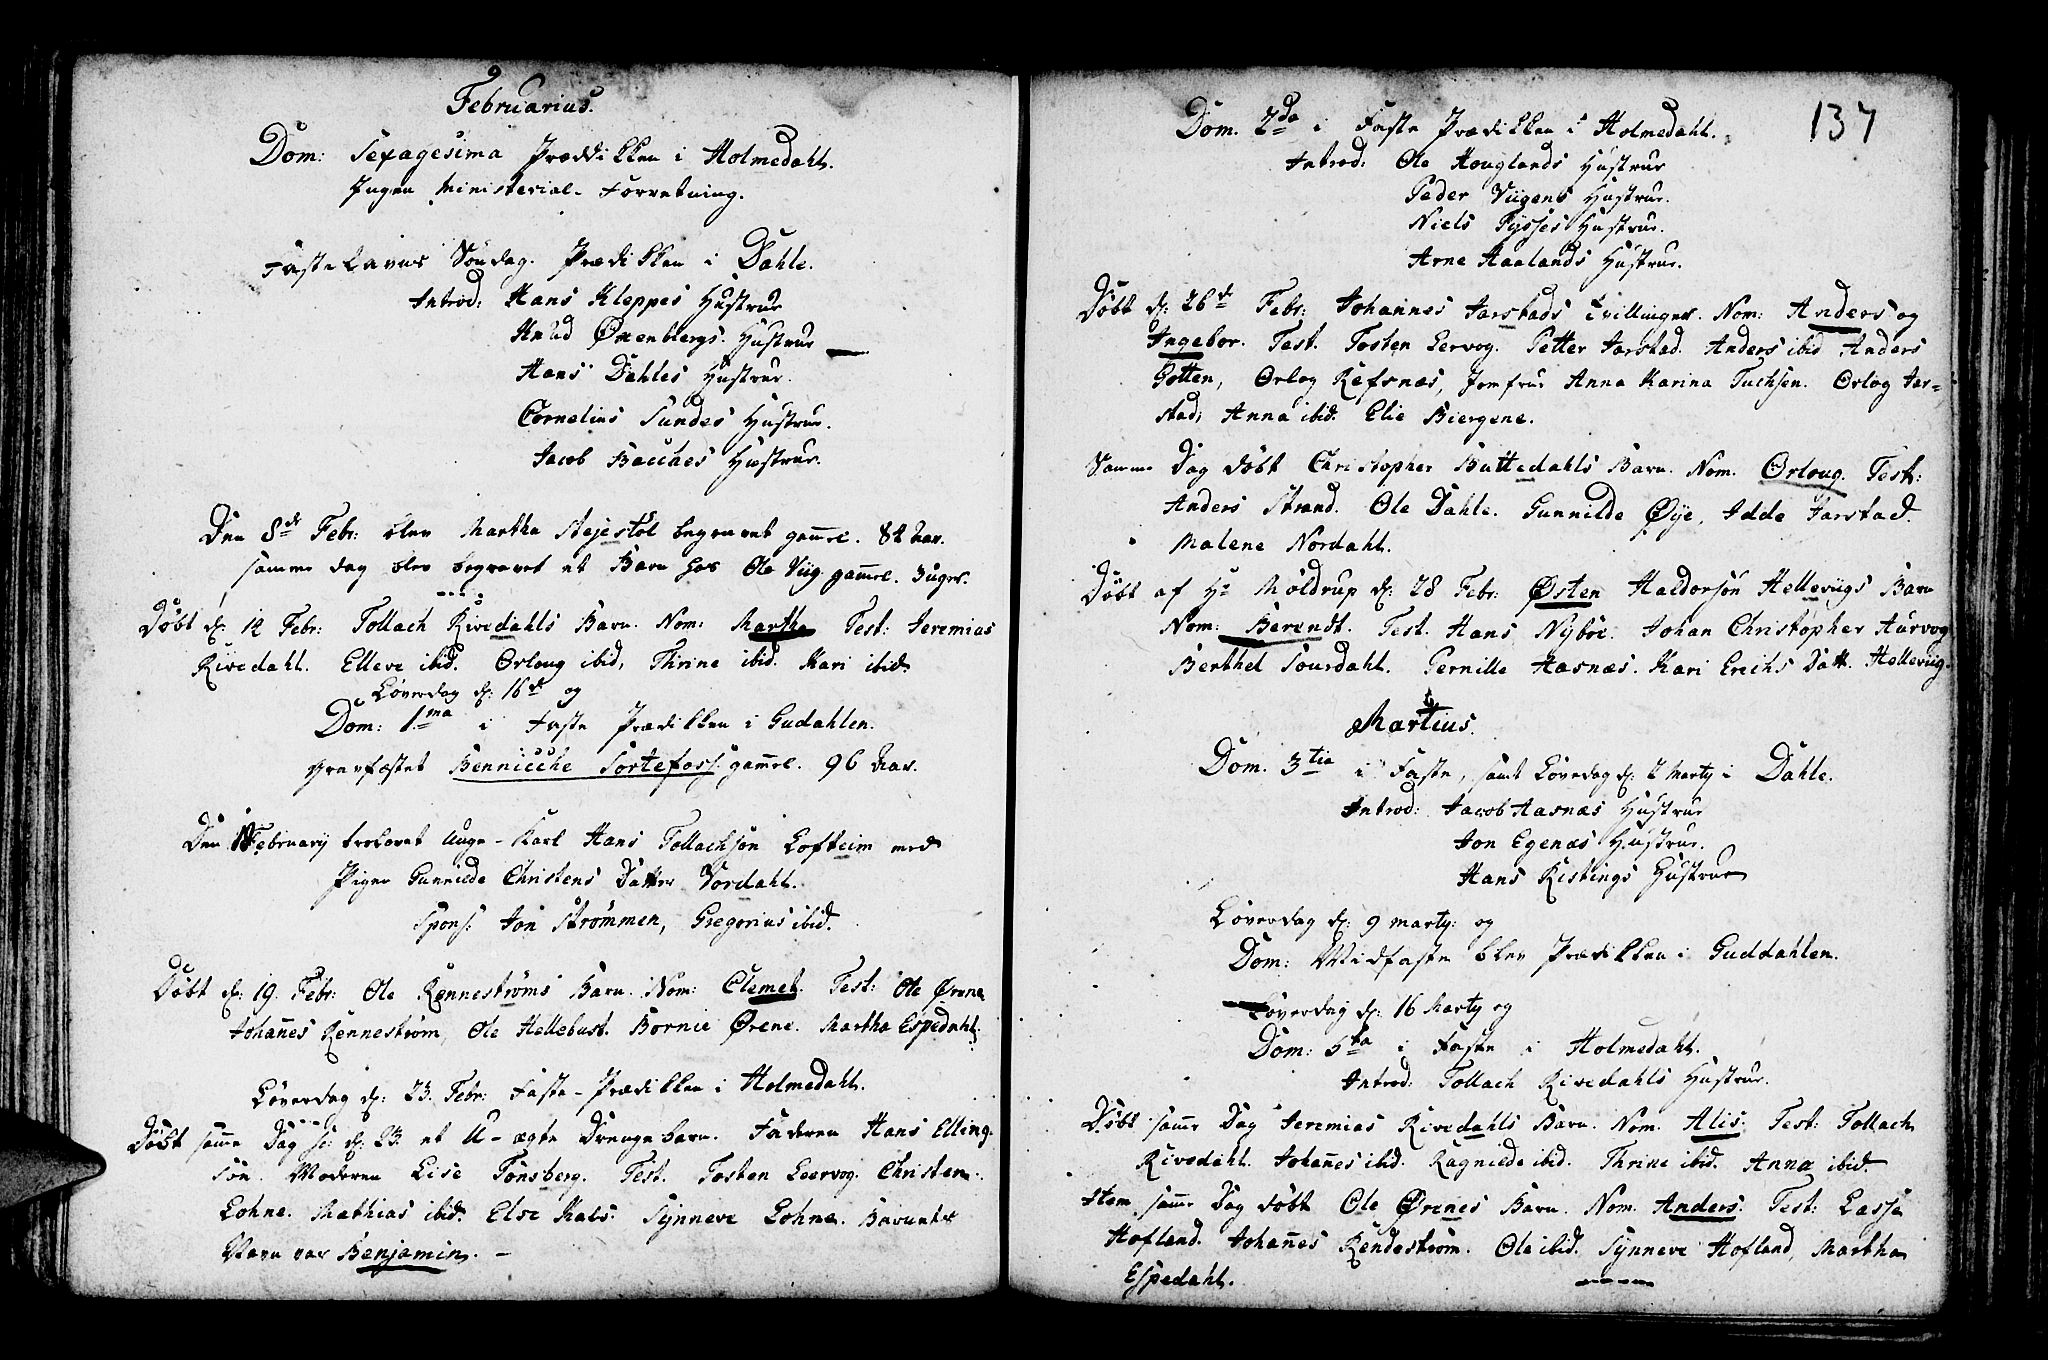 Februarius.
Dom: Sexagesima Prædiken i Holmedahl.
Ingen Ministerial-Forretning.
Fastelavns Søndag. Prædiken i Dahle.
Introd: Hans Kleppes Hustrue
Knud Øxenbergs. Hustrue
Hans Dahles Hustrue.
Cornelius Sundes Hustrue.
Jacob Backaes Hustrue.
Den 8de Febr: blev Martha Stejestøl begravet gaml. 82 Aar.
samme dag blev begravet et Barn hos Ole Viig. gaml. 3 uger.
Døbt d: 12 Febr: Tollach Rivedahls Barn. Nom: Martha Test: Jeremias
Rivedahl. Elleve ibid. Orloug ibid, Thrine ibid. Kari ibid
Løverdag d: 16de og
Dom: 1ma i Faste Prædiken i Gudahlen.
gravfæstet Bennicche Sortefoss. gaml. 96 Aar.
Den Februarÿ trolovet Unge-Karl Hans Tollachsøn Lofteim med
Pigen Gunnilde Christens Datter Nordahl.
Spons. Jon Strømmen, Gregorius ibid.
Døbt d: 19. Febr: Ole Rennestrøms Barn. Nom: Clemet. Test: Ole Ørene
Johan̄es Rennestrøm, Ole Hellebust. Bornie Ørene. Martha Espedahl.
Løverdag d: 23. Febr: Faste-Prædiken i Holmedahl.
Døbt samme Dag d: 23. et U-ægte Drengebarn. Faderen Hans Elling-
søn. Moderen Lise Tonsberg. Test. Tosten Leervog. Christen
Lohne. Mathias ibid. Else Kals. Synneve Lohne. Barnets
Navn var Benjamin. -
137
Dom. 2da i Faste Prædiken i Holmedahl.
Introd: Ole Houglands Hustrue
Peder Viigens Hustrue.
Niels Tysses Hustrue.
Arne Haalands Hustrue.
Døbt d: 26de Febr: Johannes Jarstads Tvillinger. Nom: Anders og
Ingebor. Test. Tosten Lervog. Petter Jarstad. Anders ibid Anders
Gotten, Orlog Refsnæs, Jomfrue Anna Karina Tuchsen. Orlog Jar=
stad, Anna ibid. Elie Biergene.
Samme Dag døbt Christopher Buttedahls Barn. Nom. Orloug. Test:
Anders Strand. Ole Dahle. Gunnilde Øye, Idde Jarstad.
Malene Nordahl.
Døbt af Hr Møldrup d: 28 Febr: Østen Haldorsøn Hellevigs Barn
Nom: Berendt. Test. Hans Nybøe. Johan Christopher Aarvog
Berthel Sourdahl. Pernille Aasnæs. Kari Erichs Datt. Hellevig.
Martius.
Dom. 3tia i Faste, samt Løverdag d: 2 Marty i Dahle.
Introd: Jacob Aasnæs Hustrue
Jon Egenæs Hustrue.
Hans Ristings Hustrue
Løverdag d: 9 marty: og
Dom: Midfaste blev Prædiken i Guddahlen.
Løverdag d: 16 Marty og
Dom: 5ta i Faste i Holmedahl.
Introd: Tollach Rivedahls Hustrue.
Døbt samme Dag Jeremias Rivedahls Barn. Nom. Alis. Test: Tollach
Rivedahl. Johan̄es ibid. Ragnilde ibid. Thrine ibid. Anna ibid
Item samme Dag døbt Ole Ørenes Barn. Nom. Anders. Test: Lasse
Hofland. Johan̄es Rendestrøm. Ole ibid. Synneve Hofland, Martha
Espedahl.